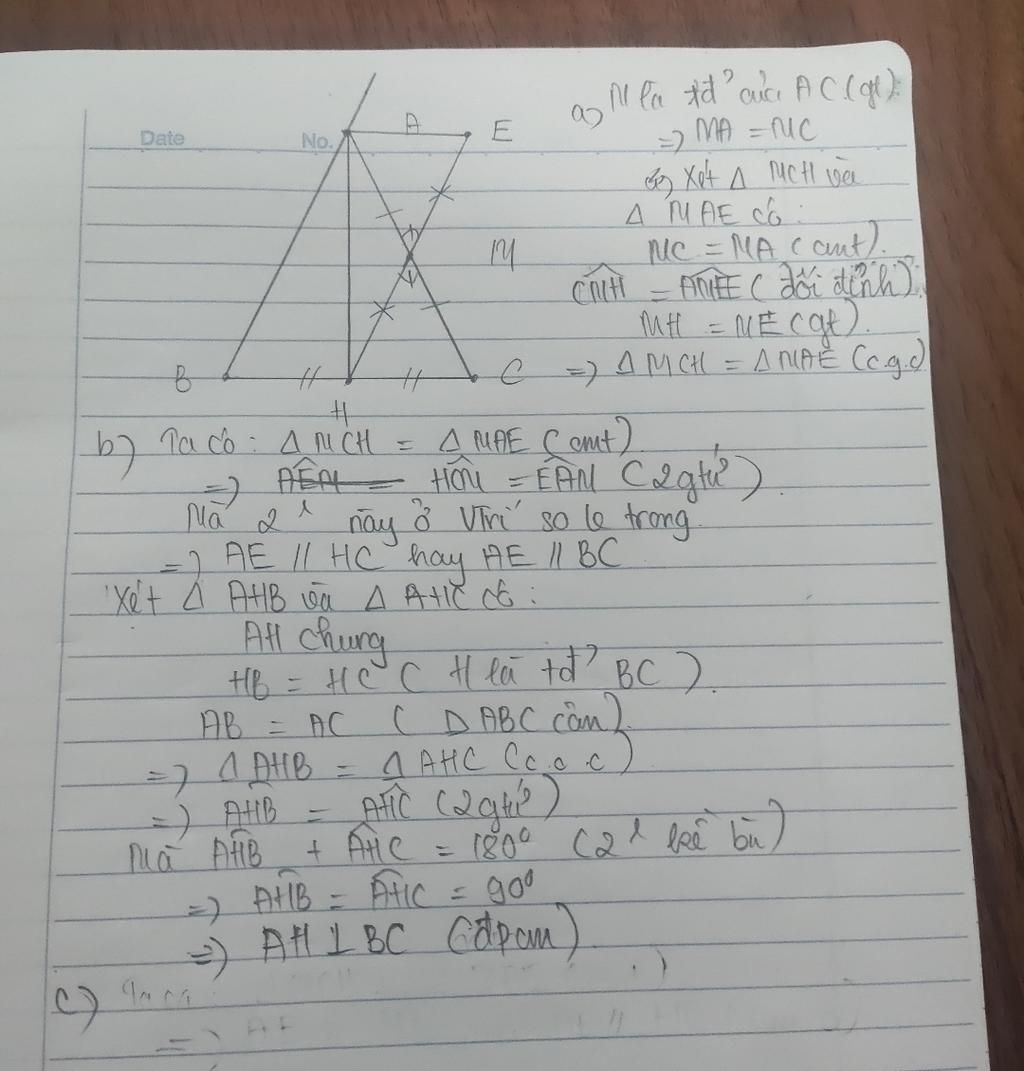 Date No.
A
E
M
B
C
H
a) M là tđ? của AC (gt)
=) MA = MC
Xét Δ MCH và
Δ MAE có:
MC = MA (cmt).
CMH = AME (đối đỉnh)
MH = ME (gt).
=) Δ MCH = Δ MAE (c.g.c)
b) Ta có: Δ MCH = Δ MAE (cmt)
=) HCM = EAM (2gtứ)
Mà 2 này ở Vtrí so le trong
=) AE // HC hay AE // BC
Xét Δ AHB và Δ AHC có:
AH chung
HB = HC ( H là tđ? BC ).
AB = AC ( Δ ABC cân).
=) Δ AHB = Δ AHC (c.c.c)
=) AHB = AHC (2gtứ)
Mà AHB + AHC = 180° (2 kề bù)
=) AHB = AHC = 90°
=) AH ⊥ BC (đpcm)
c) Ta có
=)